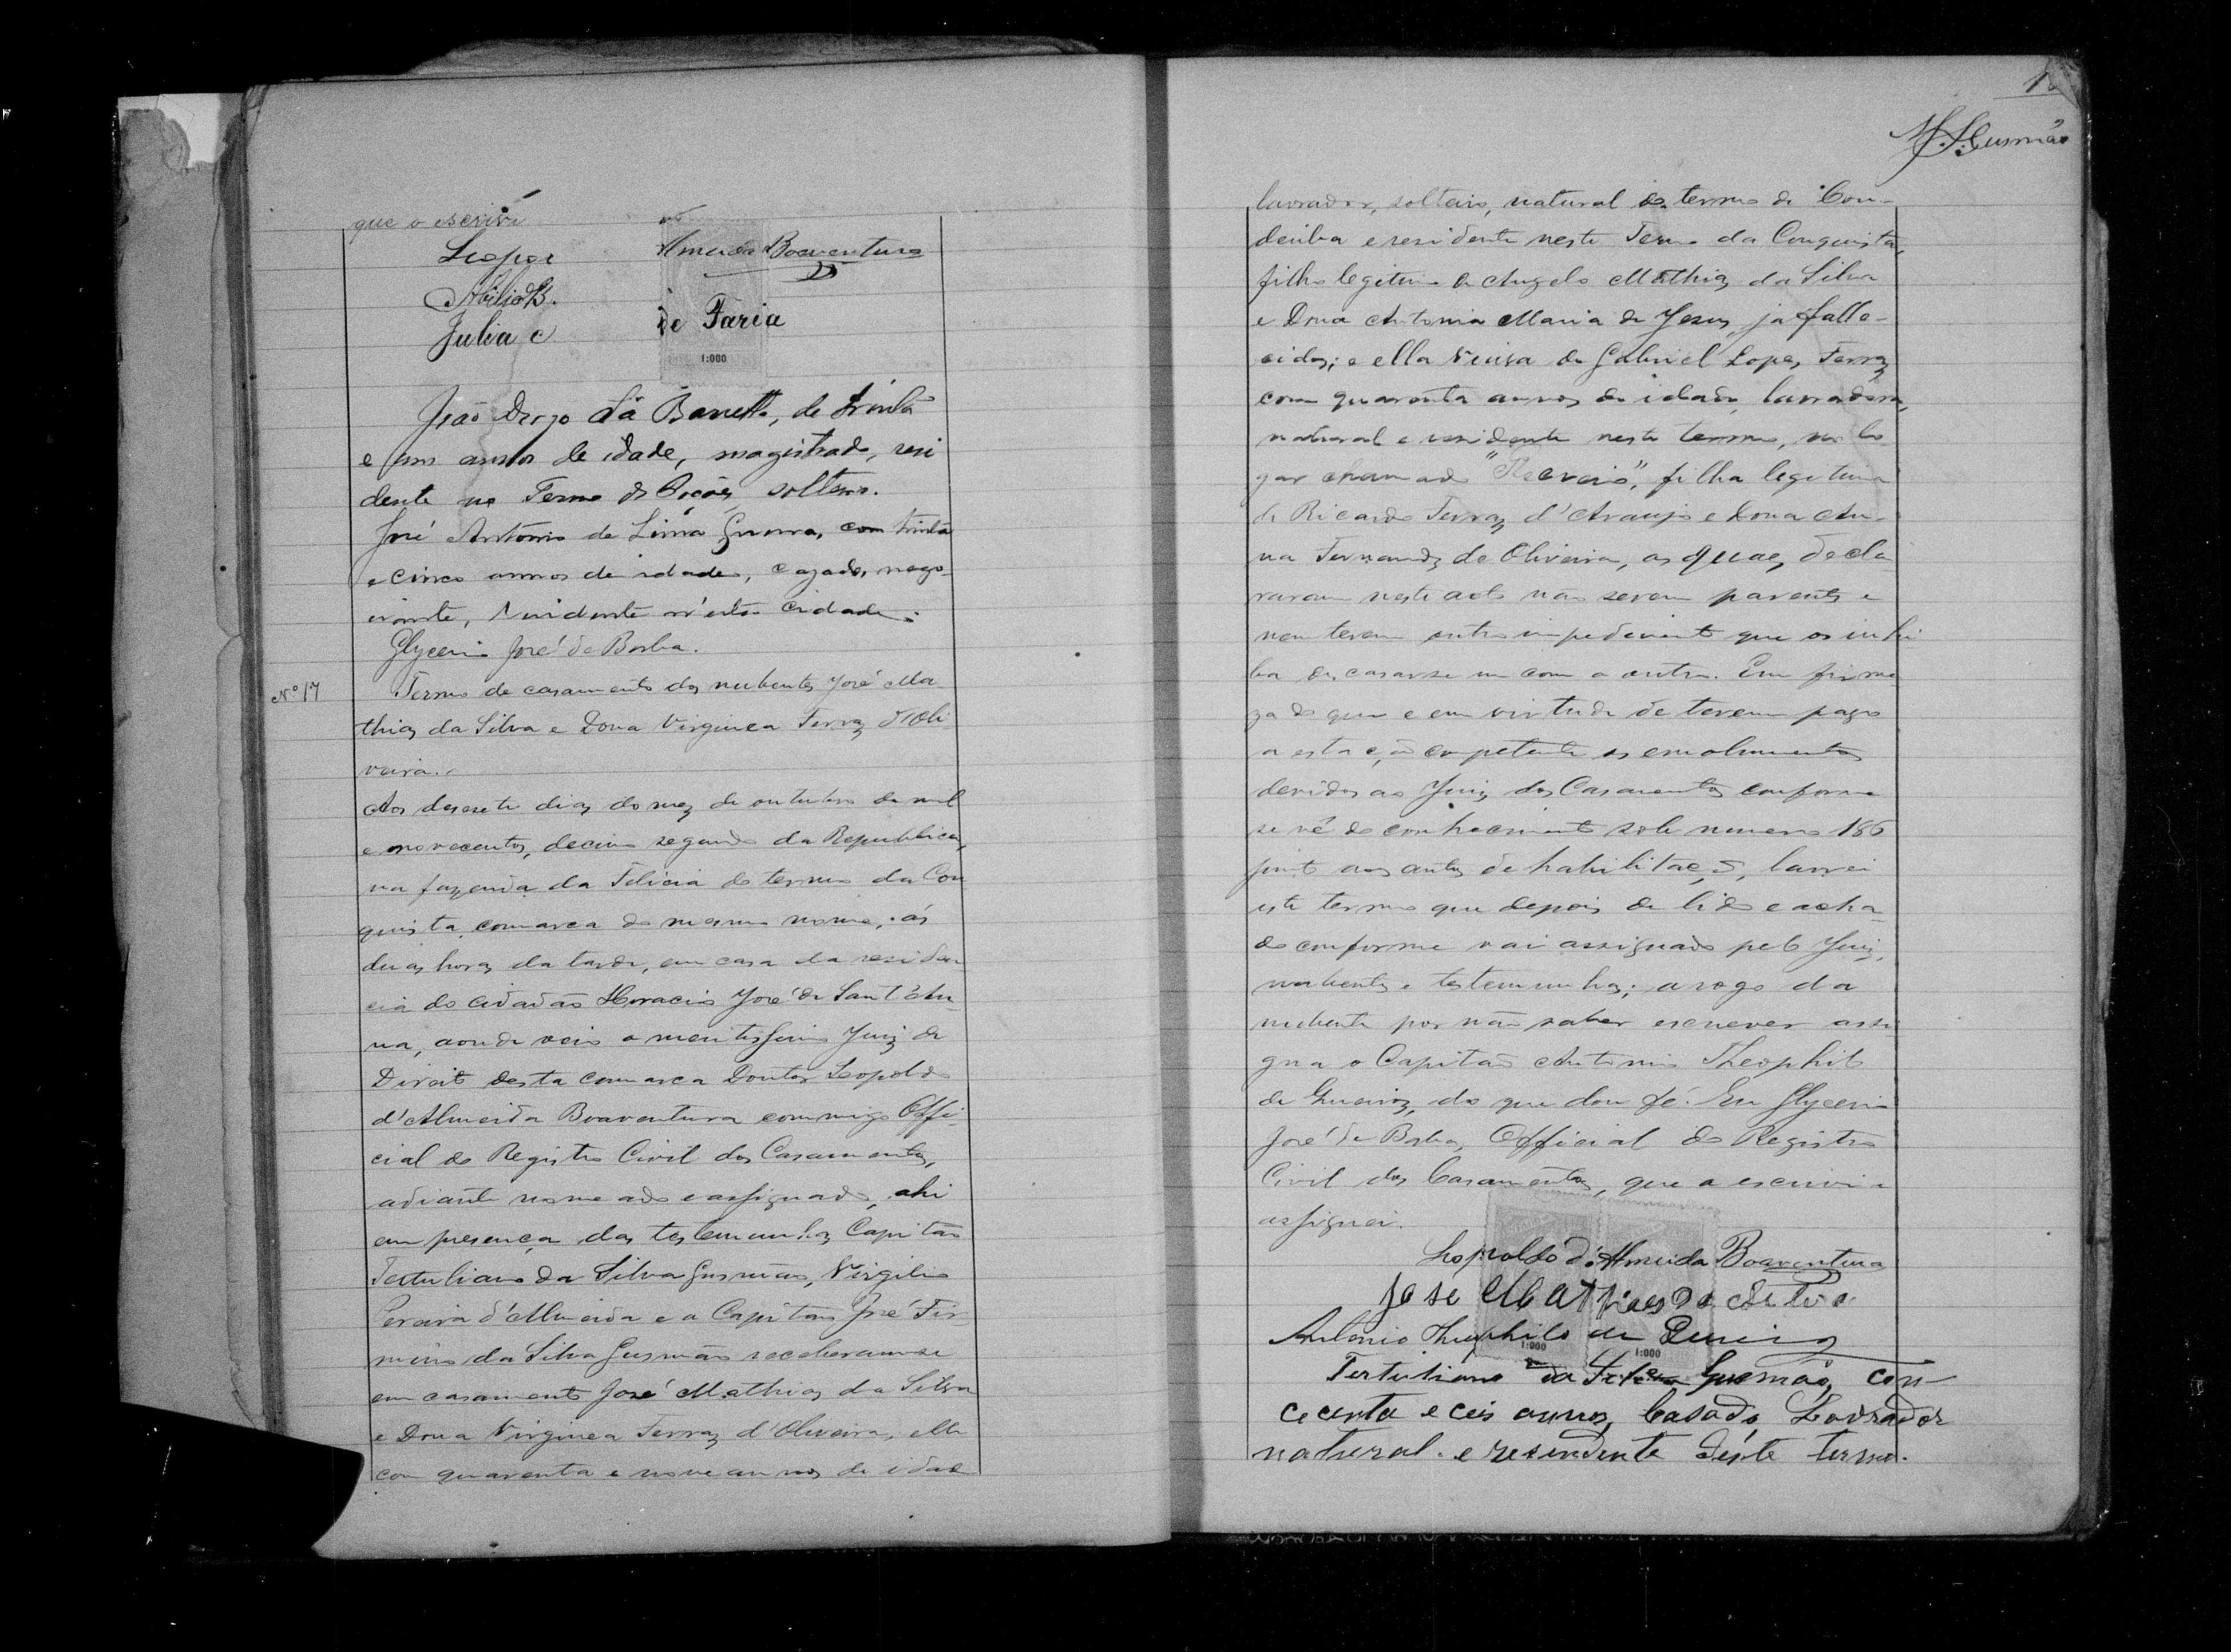 que o escrivi
Leopol Almeida Boaventura
Abilio B.
Julia de Faria
1:000
João Barretto, de trinta
e um annos de idade, magistrado, resi
dente no Termo de Poções, solteiro.
José Antonio de Lima Guerra, com trinta
e cinco annos de idade, cazado, nego-
ciante, residente n'esta cidade.
Glycerio José de Borba.
Nº 17
Termo de casamento dos nubentes José Ma
thias da Silva e Dona Virginea Ferraz d'Oli
veira.
Aos desesete dias do mez de outubro de mil
e novecentos, decimo segundo da Republica,
na fazenda da Felicia do termo da Con
quista, comarca do mesmo nome, ás
duas horas da tarde, em casa da residen
cia do cidadão Horacio José de Sant'An-
na, aonde veio o meritissimo Juiz de
Direito desta comarca Doutor Leopoldo
d'Almeida Boaventura commigo Offi-
cial do Registro Civil dos Casamentos,
adiante nomeado e assignado, ahi
em presença das testemunhas Capitão
Tertuliano da Silva Gusmão, Virgilio
Pereira d'Almeida e o Capitão José Fir
mino da Silva Gusmão receberam-se
em casamento José Mathias da Silva
e Dona Virginea Ferraz d'Oliveira, elle
com quarenta e nove annos de idade
Gusmão
lavrador, solteiro, natural do termo de Con-
deuba e residente neste Termo da Conquista,
filho legitimo de Angelo Mathias da Silva
e Dona Antonia Maria de Jesus, já falle-
cidos; e ella viuva de Gabriel Lopes Ferraz
com quarenta annos de idade, lavradora,
natural e residente neste termo, no lo
gar chamado "Recreio", filha legitima
de Ricardo Ferraz d'Araujo e Dona An-
na Fernandes de Oliveira, os quaes decla
raram neste acto não serem parentes e
nem terem outro impedimento que os inhi
ba de casar-se um com o outro. Em firme
za do que e em virtude de terem pago
a estação competente os emolumentos
devidos ao Juiz dos Casamentos conforme
se vê do conhecimento sob numero 186
junto aos autos de habilitação, lavrei
este termo que depois de lido e acha-
do conforme vai assignado pelo Juiz,
nubentes e testemunhas; a rogo da
nubente por não saber escrever assi
gna o Capitão Antonio Theophilo
de Queiroz, do que dou fé. Eu Glycerio
José de Borba, Official do Registro
Civil dos Casamentos, que o escrivi e
assignei.
Leopoldo d'Almeida Boaventura
Jose Mathias da Silva
Antonio Theophilo de Queiroz
1:000 1:000
Tertuliano da Silva Gusmão, cin-
coenta e ceis annos, Casado, Lavrador
natural e resendente deste termo.